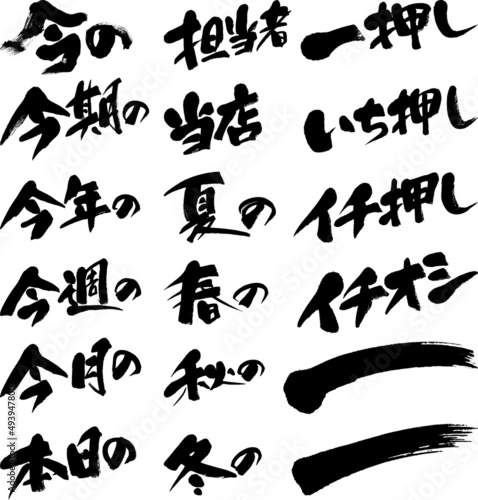 今の 担当者 一押し
今期の 当店 いち押し
今年の 夏の イチ押し
今週の 春の イチオシ
今月の 秋の
本日の 冬の